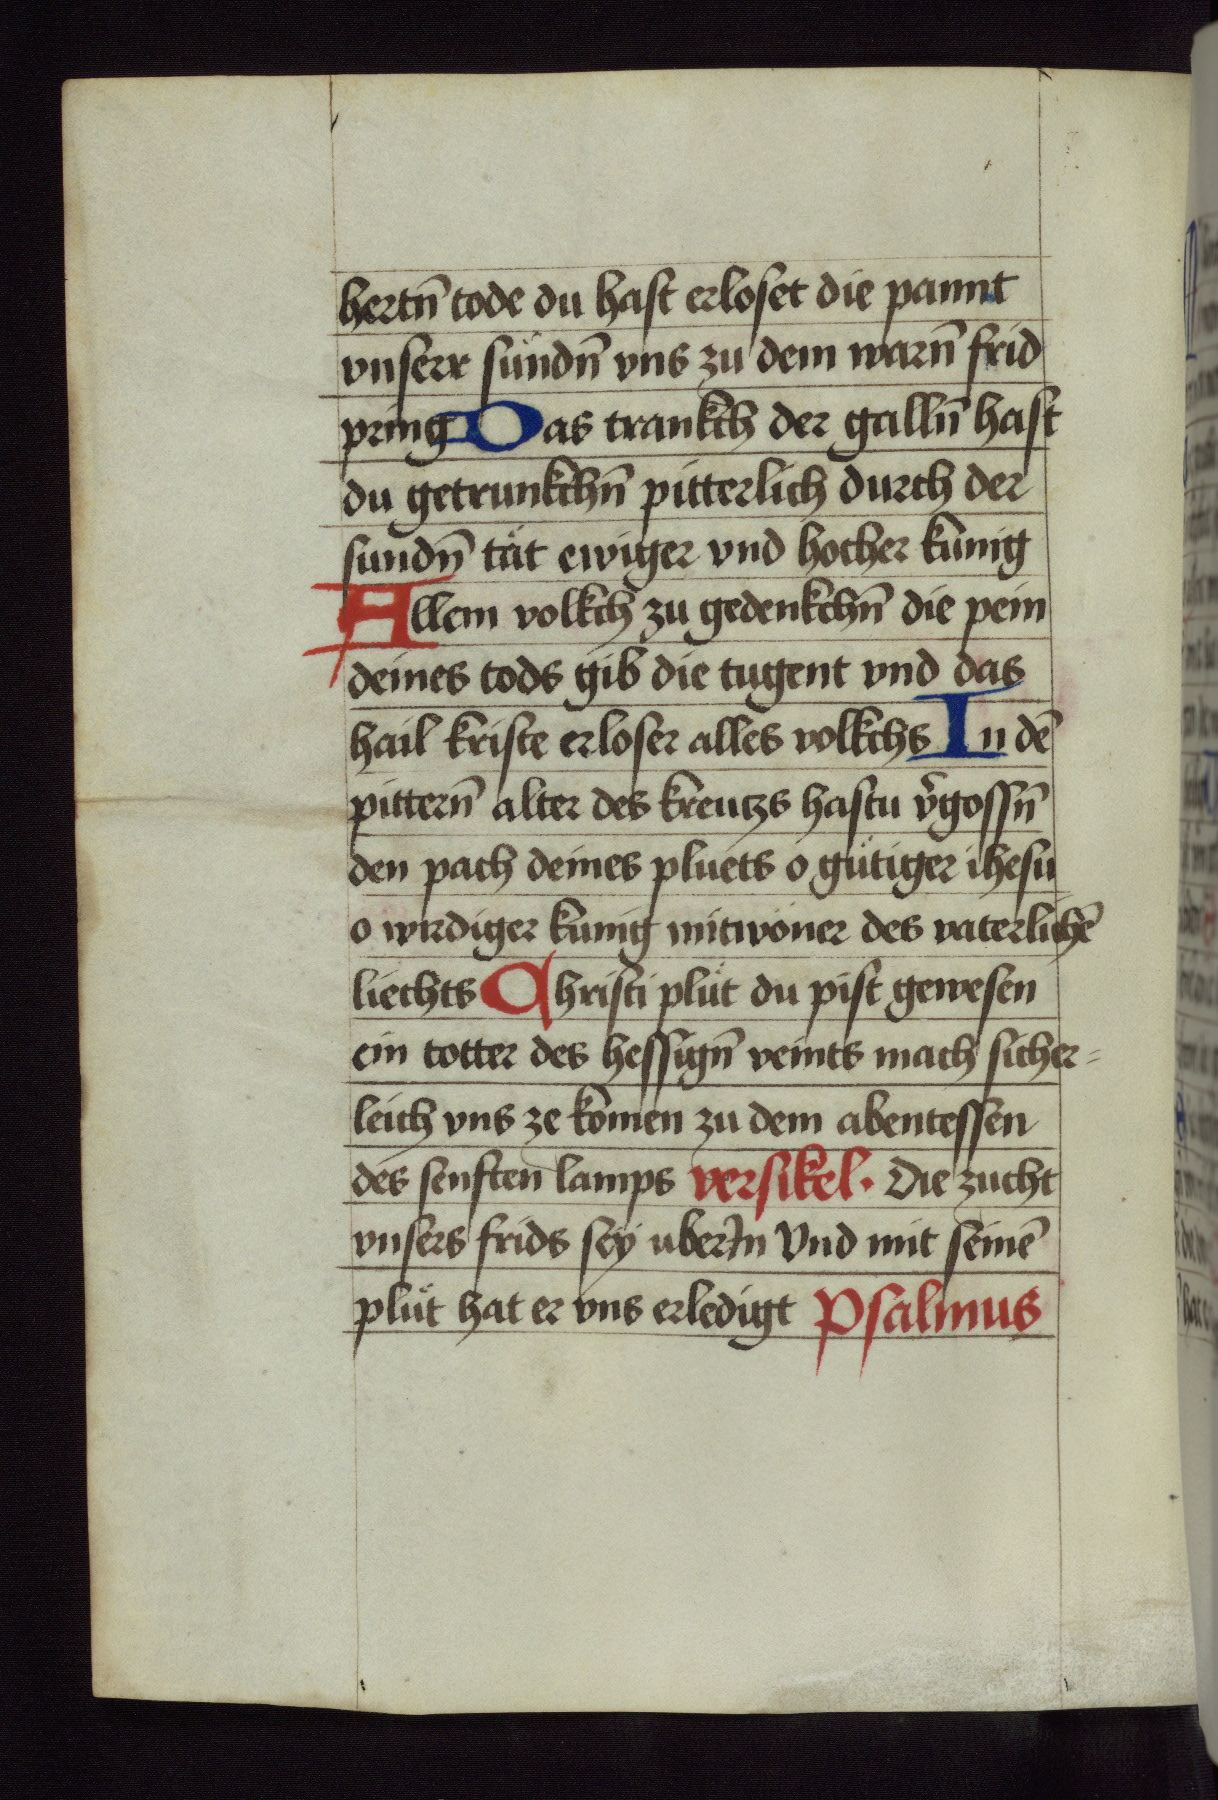 hertn̄ tode du hast erloset die pannt
vnserr sündn̄ vns zu dem warn̄ frid
pring Das trankch der galln̄ hast
du getrunkchn̄ pitterlich durch der
sundn̄ tät ewiger vnd hocher kunig
Allem volkch zu gedenkchn̄ die pein
deines tods gib die tugent vnd das
hail kriste erloser alles volkchs In dē
pittern̄ alter des kreutzs hastu v̄gossn̄
den pach deines pluets o gütiger ihesu
o wirdiger kunig mitwoner des vaterlichē
liechts Christi plüt du pist gewesen
ein totter des hessign̄ veints mach sicher=
leich vns ze komen zu dem abentessen
des senften lamps versikel. Die zucht
vnsers frids sey uber In Vnd mit seinē
plüt hat er vns erledigt Psalmus